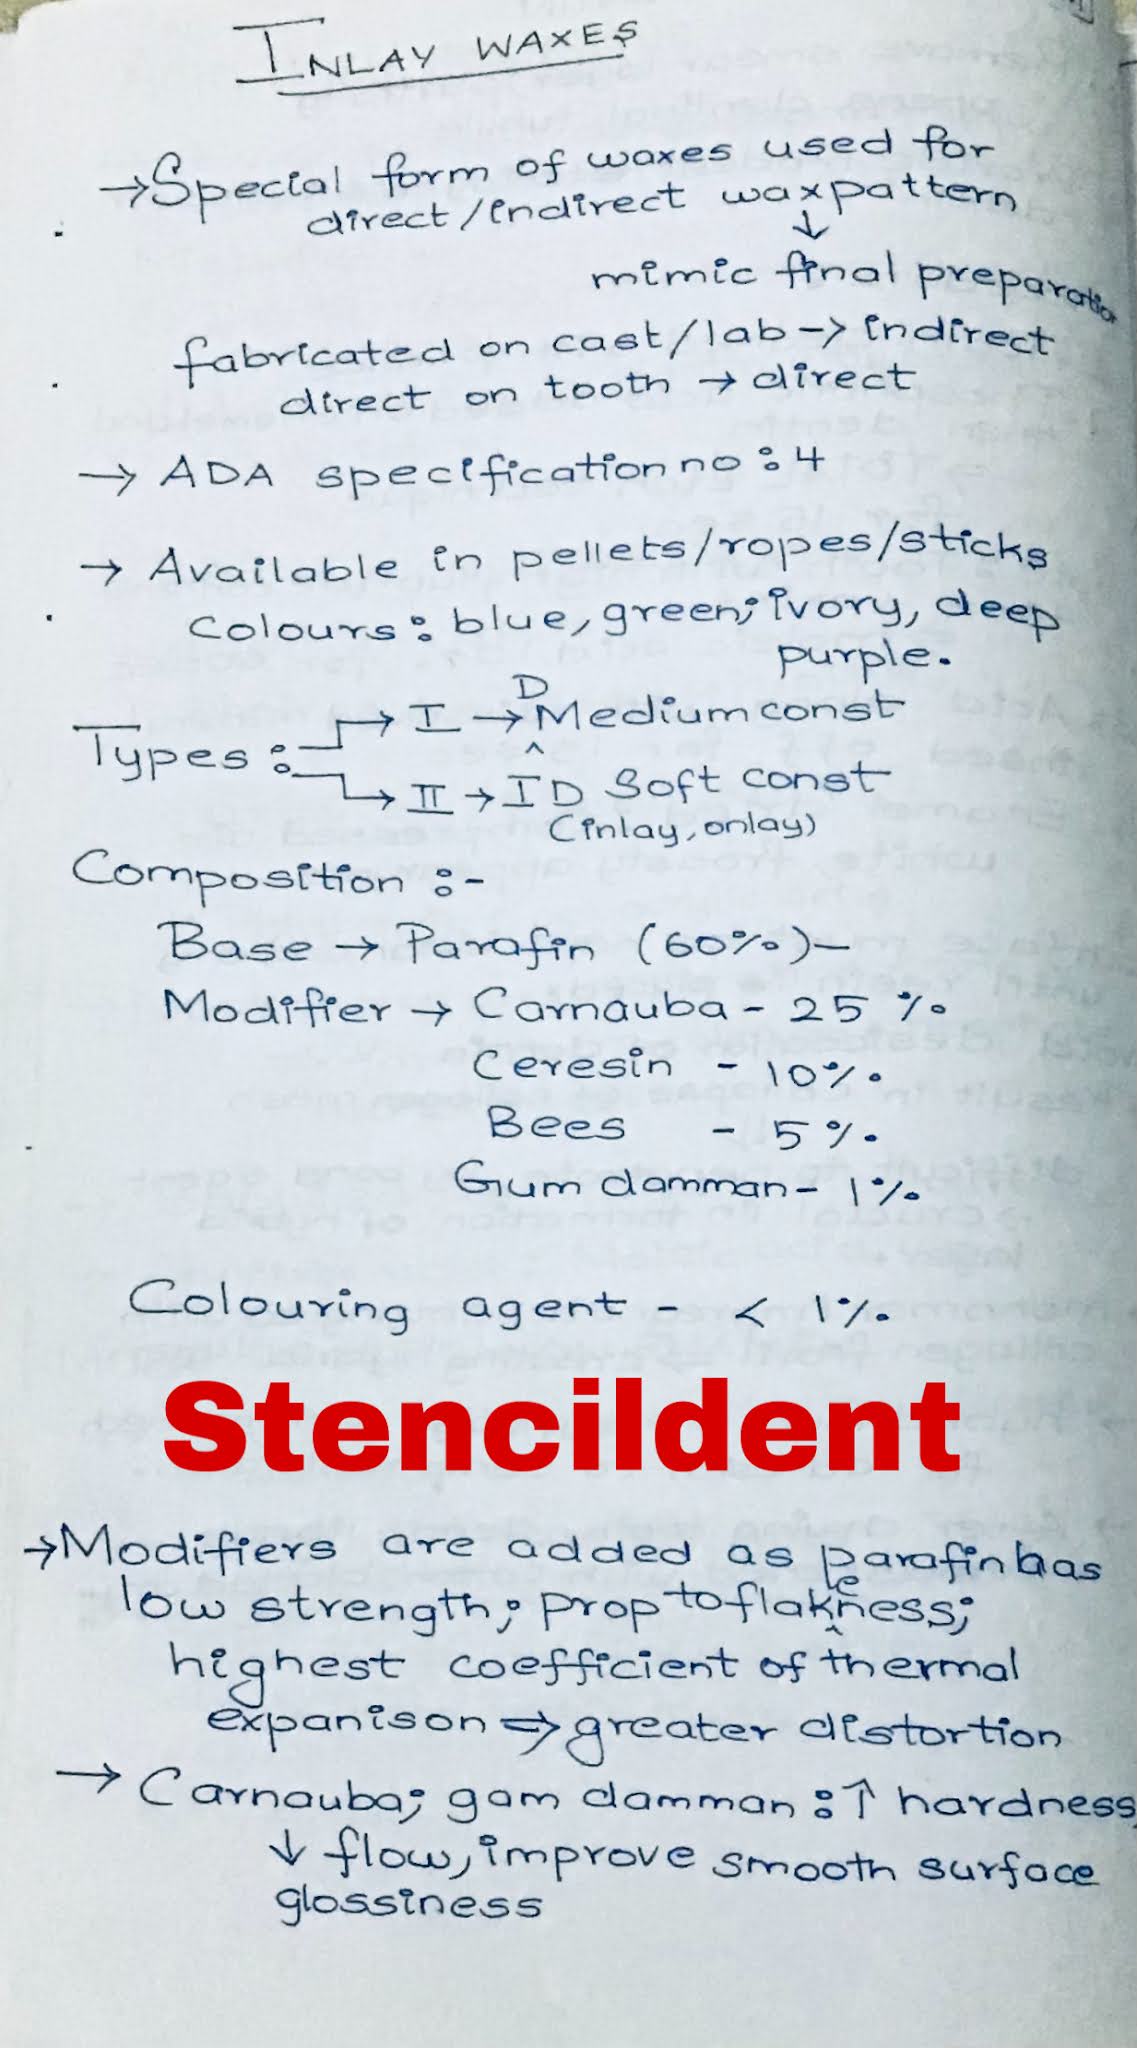 INLAY WAXES
→Special form of waxes used for
direct/indirect waxpattern
↓
mimic final preparation
fabricated on cast/lab → indirect
direct on tooth → direct
→ ADA specification no : 4
→ Available in pellets/ropes/sticks
Colours : blue, green; ivory, deep
purple.
Types : → I → D Medium const
→ II → ID Soft const
(inlay, onlay)
Composition :-
Base → Parafin (60%)-
Modifier → Carnauba - 25 %.
Ceresin - 10%.
Bees - 5 %.
Gum damman - 1%.
Colouring agent - < 1%.
Stencildent
→Modifiers are added as parafin has
low strength; prop to flakeness;
highest coefficient of thermal
expanison ⇒ greater distortion
→ Carnauba; gam damman : ↑ hardness,
↓ flow, improve smooth surface
glossiness